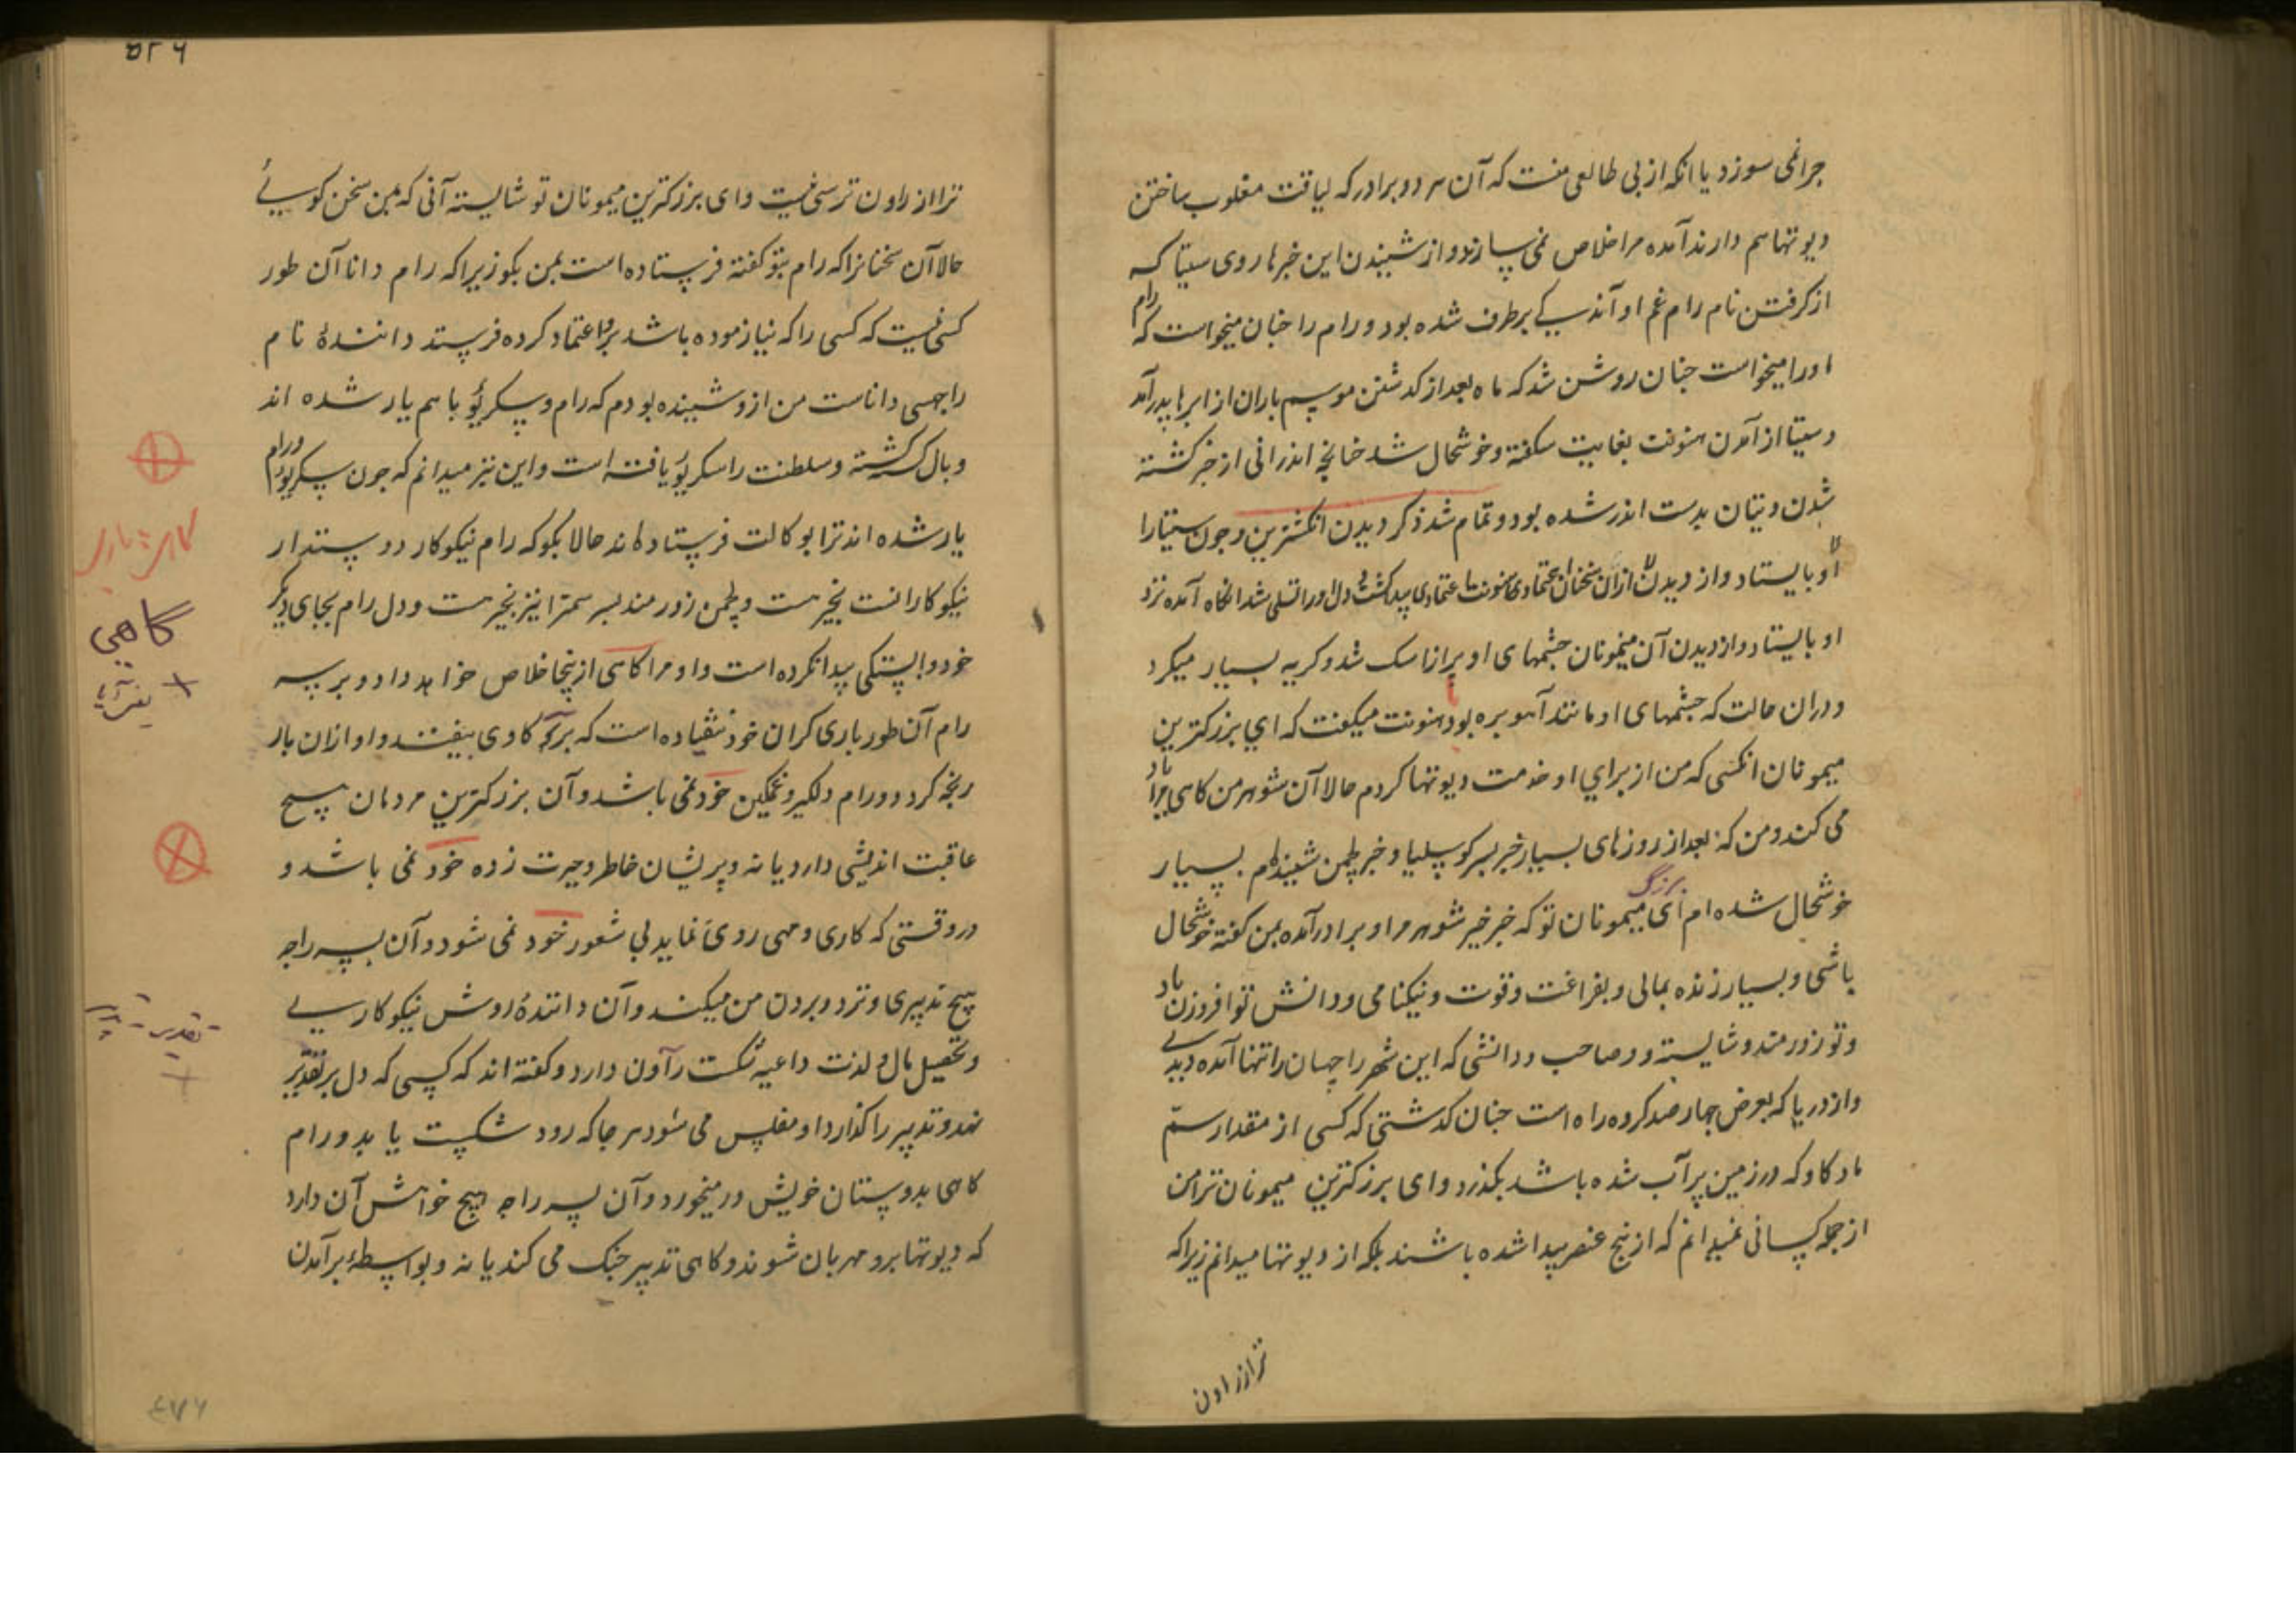 جرا نمی سوزد یا انکه از بی طالعی منست که آن هر دو برادر که لیاقت مغلوب ساختن
دیوتها هم دارند آمده مرا خلاص نمی سازند و از شنیدن این خبرها روی سیتا که
از کرفتن نام رام غم او آندکی برطرف شده بود و رام را جنان میخواست که رام
او را میخواست جنان روشن شد که ماه بعد از کدشتن موسم باران از ابرها بدر آمد
و سیتا از آمدن هنونت بغایت شکفته و خوشحال شد جنانچه اندرانی از خبر کشته
شدن دیتان بدست اندر شده بود و تمام شد ذکر دیدن انکشترین و جون سیتا را
از آن سخنان اعتمادی پیدا کشت و دل او را تسلی شد انکاه آمده نزد
او بایستاد و از دیدن آن میمونان جشمهای او پر از اشک شد و کریه بسیار میکرد
و دران حالت که جشمهای او مانند آهو بره بود بهنونت میکفت که ای بزرکترین
میمونان انکسی که من از برای او خدمت دیوتها کردم حالا آن شوهر من کاهی مرا یاد
می کند و من که بعد از روزهای بسیار خبر پسر کوسلیا و خبر لچمن شنیده ام بسیار
خوشحال شده ام ای بزرگ میمونان تو که خبر خیر شوهر مرا و برادر آمده بمن کفته خوشحال
باشی و بسیار زنده بمانی و بفراغت و قوت و نیکنامی و دانش تو افزون باد
و تو زورمند و شایسته و صاحب دانشی که این شهر راچهسان را تنها آمده دیدی
و از دریا که بعرض جهار صد کروه راه است جنان کدشتی که کسی از مقدار سم
ماده کاو که در زمین پر آب شده باشد بکذرد و ای بزرکترین میمونان ترا من
از جمله کسانی نمیدانم که از پنج عنصر پیدا شده باشند بلکه از دیوتها میدانم زیراکه
ترا از راون
۵۲۶
ترا از راون ترسی نیست و ای بزرکترین میمونان تو شایسته آنی که بمن سخن کوئی
حالا آن سخنانرا که رام بتو کفته فرستاده است بمن بکو زیراکه رام دانا آن طور
کسی نیست که کسی را که نیازموده باشد برو اعتماد کرده فرستد دانندۀ نام
راجهسی داناست من ازو شنیده بودم که رام و سکریو باهم یار شده اند
و بال کشته و سلطنت را سکریو یافته است و این نیز میدانم که جون سکریو و رام
یار شده اند ترا بوکالت فرستاده اند حالا بکو که رام نیکوکار دوستدار
نیکوکارانست بخیر هست و لچمن زورمند پسر سمترا نیز بخیر هست و دل رام بجای دیکر
خود وابستکی پیدا نکرده است و او مرا کاهی از ینجا خلاص خواهد داد و بر سر
رام آن طور باری کران خود نیفتاده است که بر کاوی بیفتد و او ازان بار
رنجه کردد و رام دلکیر و غمکین خود نمی باشد و آن بزرکترین مردمان هیچ
عاقبت اندیشی دارد یا نه و پریشان خاطر و حیرت زده خود نمی باشد و
در وقتی که کاری و مهمی روی نماید بی شعور خود نمی شود و آن پسر راجه
هیچ تدبیری و تردد بردن من میکند و آن دانندۀ روش نیکوکاری
و تحصیل مال و لذت داعیه شکست راون دارد و کفته اند که کسی که دل بر تقدیر
نهد و تدبیر را کذارد او مفلس می شود هر جا که رود شکست یابد و رام
کاهی بدوستان خویش در میخورد و آن پسر راجه هیچ خواهش آن دارد
که دیوتها برو مهربان شوند و کاهی تدبیر جنک می کند یا نه و بواسطۀ برآمدن
گاهی
تقدیر - تدبیر